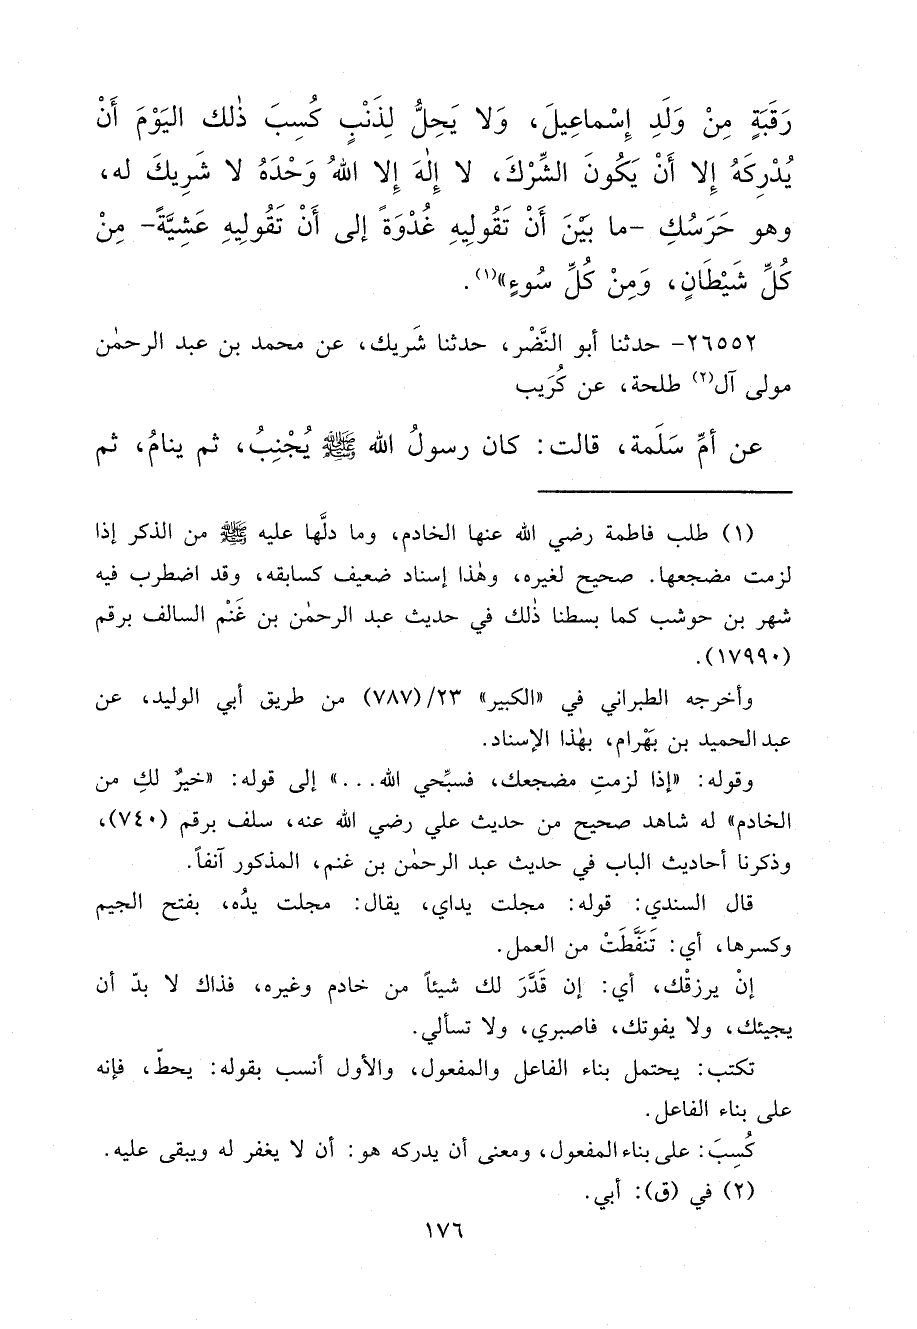 رَقَبَةٍ مِنْ وَلَدِ إِسْماعِيلَ، وَلا يَحِلُّ لِذَنْبٍ كُسِبَ ذٰلك اليَوْمَ أَنْ
يُدْرِكَهُ إِلا أَنْ يَكُونَ الشِّرْكَ، لا إِلٰهَ إِلا اللهُ وَحْدَهُ لا شَرِيكَ له،
وهو حَرَسُكِ -ما بَيْنَ أَنْ تَقُولِيهِ غُدْوَةً إلى أَنْ تَقُولِيهِ عَشِيَّةً- مِنْ
كُلِّ شَيْطَانٍ، وَمِنْ كُلِّ سُوءٍ»(١).
٢٦٥٥٢- حدثنا أبو النَّضْر، حدثنا شَريك، عن محمد بن عبد الرحمٰن
مولى آل(٢) طلحة، عن كُرَيب
عن أمِّ سَلَمة، قالت: كان رسولُ الله ﷺ يُجْنِبُ، ثم ينامُ، ثم
(١) طلب فاطمة رضي الله عنها الخادم، وما دلَّها عليه ﷺ من الذكر إذا
لزمت مضجعها. صحيح لغيره، وهٰذا إسناد ضعيف كسابقه، وقد اضطرب فيه
شهر بن حوشب كما بسطنا ذٰلك في حديث عبد الرحمٰن بن غَنْم السالف برقم
(١٧٩٩٠).
وأخرجه الطبراني في «الكبير» ٢٣/(٧٨٧) من طريق أبي الوليد، عن
عبد الحميد بن بَهْرام، بهٰذا الإسناد.
وقوله: «إذا لزمتِ مضجعك، فسبِّحي الله...» إلى قوله: «خيرٌ لكِ من
الخادم» له شاهد صحيح من حديث علي رضي الله عنه، سلف برقم (٧٤٠)،
وذكرنا أحاديث الباب في حديث عبد الرحمٰن بن غنم، المذكور آنفاً.
قال السندي: قوله: مجلت يداي، يقال: مجلت يدُه، بفتح الجيم
وكسرها، أي: تَنَفَّطَتْ من العمل.
إنْ يرزقْك، أي: إن قَدَّرَ لك شيئاً من خادم وغيره، فذاك لا بدّ أن
يجيئك، ولا يفوتك، فاصبري، ولا تسألي.
تكتب: يحتمل بناء الفاعل والمفعول، والأول أنسب بقوله: يحطّ، فإنه
على بناء الفاعل.
كُسِبَ: على بناء المفعول، ومعنى أن يدركه هو: أن لا يغفر له ويبقى عليه.
(٢) في (ق): أبي.
١٧٦